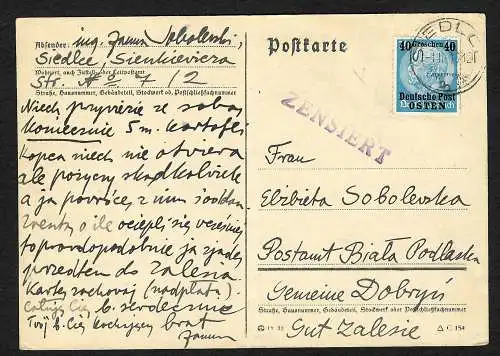 Absender: inż. Janusz Sobolewski,
Siedlce, Sienkiewicza
Wohnort, auch Zustell- oder Leitpostamt
Str. No 7 / 2
Straße, Hausnummer, Gebäudeteil, Stockwerk od. Postschließfachnummer
Niech przywiezie ze sobą
koniecznie 5 m. kartofli
Kopca niech nie otwiera
ale pożyczy skądkolwiek
a ja powrócę z nim i oddam
Zresztą o ile ociepli się wcześniej
to prawdopodobnie ja zjadę
przedtem do Zalesia
Kartę zachowaj (nadpłat.)
Całuję Cię b. serdecznie
Twój b. Cię kochający brat
Janusz
Postkarte
SIEDLC
40 Groschen 40
Deutsche Post
OSTEN
ZENSIERT
Frau
Elżbieta Sobolewska
Postamt Biała Podlaska
Gemeine Dobryń
Straße, Hausnummer, Gebäudeteil, Stockwerk oder Postschließfachnummer
Gut Zalesie
C 154